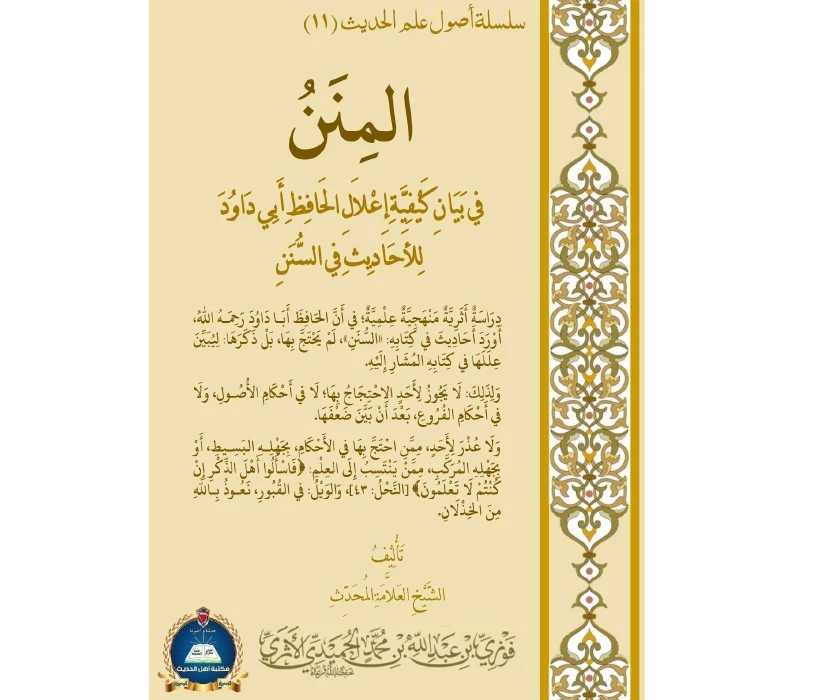 سلسلة أصول علم الحديث (١١)
المِنَنُ
فِي بَيَانِ كَيْفِيَّةِ إِعْلَالِ الْحَافِظِ أَبِي دَاوُدَ
لِلأَحَادِيثِ فِي السُّنَنِ
دِرَاسَةٌ أَثَرِيَّةٌ مَنْهَجِيَّةٌ عِلْمِيَّةٌ؛ فِي أَنَّ الحَافِظَ أَبَا دَاوُدَ رَحِمَهُ اللهُ،
أَوْرَدَ أَحَادِيثَ فِي كِتَابِهِ: «السُّنَنِ»، لَمْ يَحْتَجَّ بِهَا، بَلْ ذَكَرَهَا: لِيُبَيِّنَ
عِلَلَهَا فِي كِتَابِهِ المُشَارِ إِلَيْهِ.
وَلِذَلِكَ: لَا يَجُوزُ لِأَحَدٍ الاحْتِجَاجُ بِهَا؛ لَا فِي أَحْكَامِ الأُصُولِ، وَلَا
فِي أَحْكَامِ الفُرُوعِ، بَعْدَ أَنْ بَيَّنَ ضَعْفَهَا.
وَلَا عُذْرَ لِأَحَدٍ، مِمَّنِ احْتَجَّ بِهَا فِي الأَحْكَامِ، بِجَهْلِهِ البَسِيطِ، أَوْ
بِجَهْلِهِ المُرَكَّبِ، مِمَّنْ يَنْتَسِبُ إِلَى العِلْمِ: ﴿فَاسْأَلُوا أَهْلَ الذِّكْرِ إِنْ
كُنْتُمْ لَا تَعْلَمُونَ﴾ [النَّحْلُ: ٤٣]، وَالوَيْلُ: فِي القُبُورِ، نَعُوذُ بِاللهِ
مِنَ الخِذْلَانِ.
تَأْلِيفُ
الشَّيْخِ العَلَّامَةِ المُحَدِّثِ
فَوْزِيِّ بْنِ عَبْدِ اللهِ بْنِ مُحَمَّدٍ الحُمَيْدِيِّ الأَثَرِيِّ
مكتبة أهل الحديث